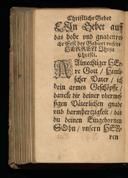 Christliche Gebet
Ein Gebet auff
das hohe und gnadenrei
che Fest der Geburt unsers
HERREN Jhesu
Christi.
Allmechtiger HE
rre Gott / Himli
scher Vater / ich
dein armes Geschöpffe /
dancke dir deiner ubermes
sigen Väterlichen gnade
und barmhertzigkeit / das
du deinen Eingebornen
SOhn / unsern HER
ren